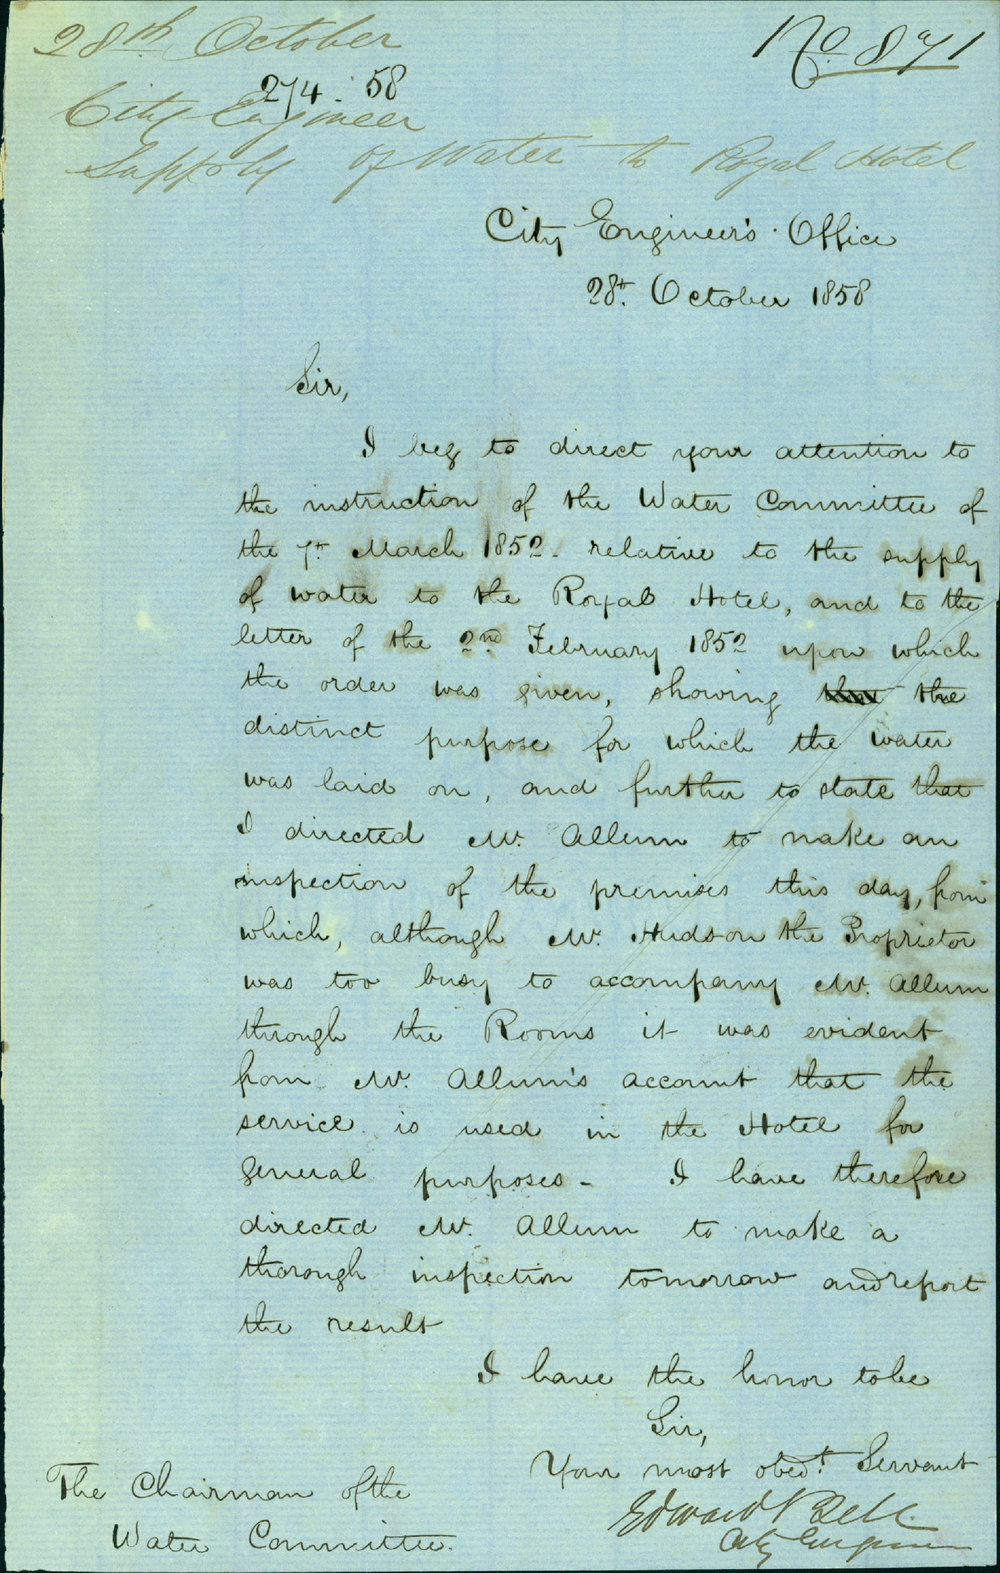 28th October
No. 871
274. 58
City Engineer
Supply of Water to Royal Hotel
City Engineer's Office
28t. October 1858
Sir,
I beg to direct your attention to
the instruction of the Water Committee of
the 7th March 1852 - relative to the supply
of water to the Royal Hotel, and to the
letter of the 2nd February 1852 upon which
the order was given, showing that the
distinct purpose for which the water
was laid on, and further to state that
I directed Mr. Allum to make an
inspection of the premises this day, from
which, although Mr. Hudson the Proprietor
was too busy to accompany Mr. Allum
through the Rooms it was evident
from Mr. Allum's account that the
service is used in the Hotel for
general purposes - I have therefore
directed Mr. Allum to make a
thorough inspection tomorrow and report
the result
I have the honor to be
Sir,
Your most obedt. Servant
Edward Bell.
City Engineer
The Chairman of the
Water Committee.